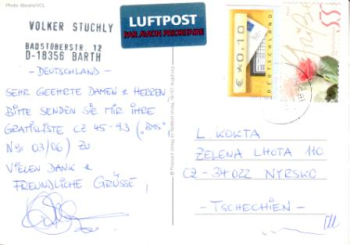 VOLKER STUCHLY
BADSTÜBERSTR. 12
D-18356 BARTH
-DEUTSCHLAND-
SEHR GEEHRTE DAMEN & HERREN
BITTE SENDEN SIE MIR IHRE
GRATISLISTE CZ 45-93 ("BMS"
N° 03/06) ZU
VIELEN DANK &
FREUNDLICHE GRÜSSE!
LUFTPOST
PAR AVION PRIORITAIRE
€ 0,10
DEUTSCHLAND
L KOKTA
ZELENA LHOTA 110
CZ-34022 NYRSKO
-TSCHECHIEN-